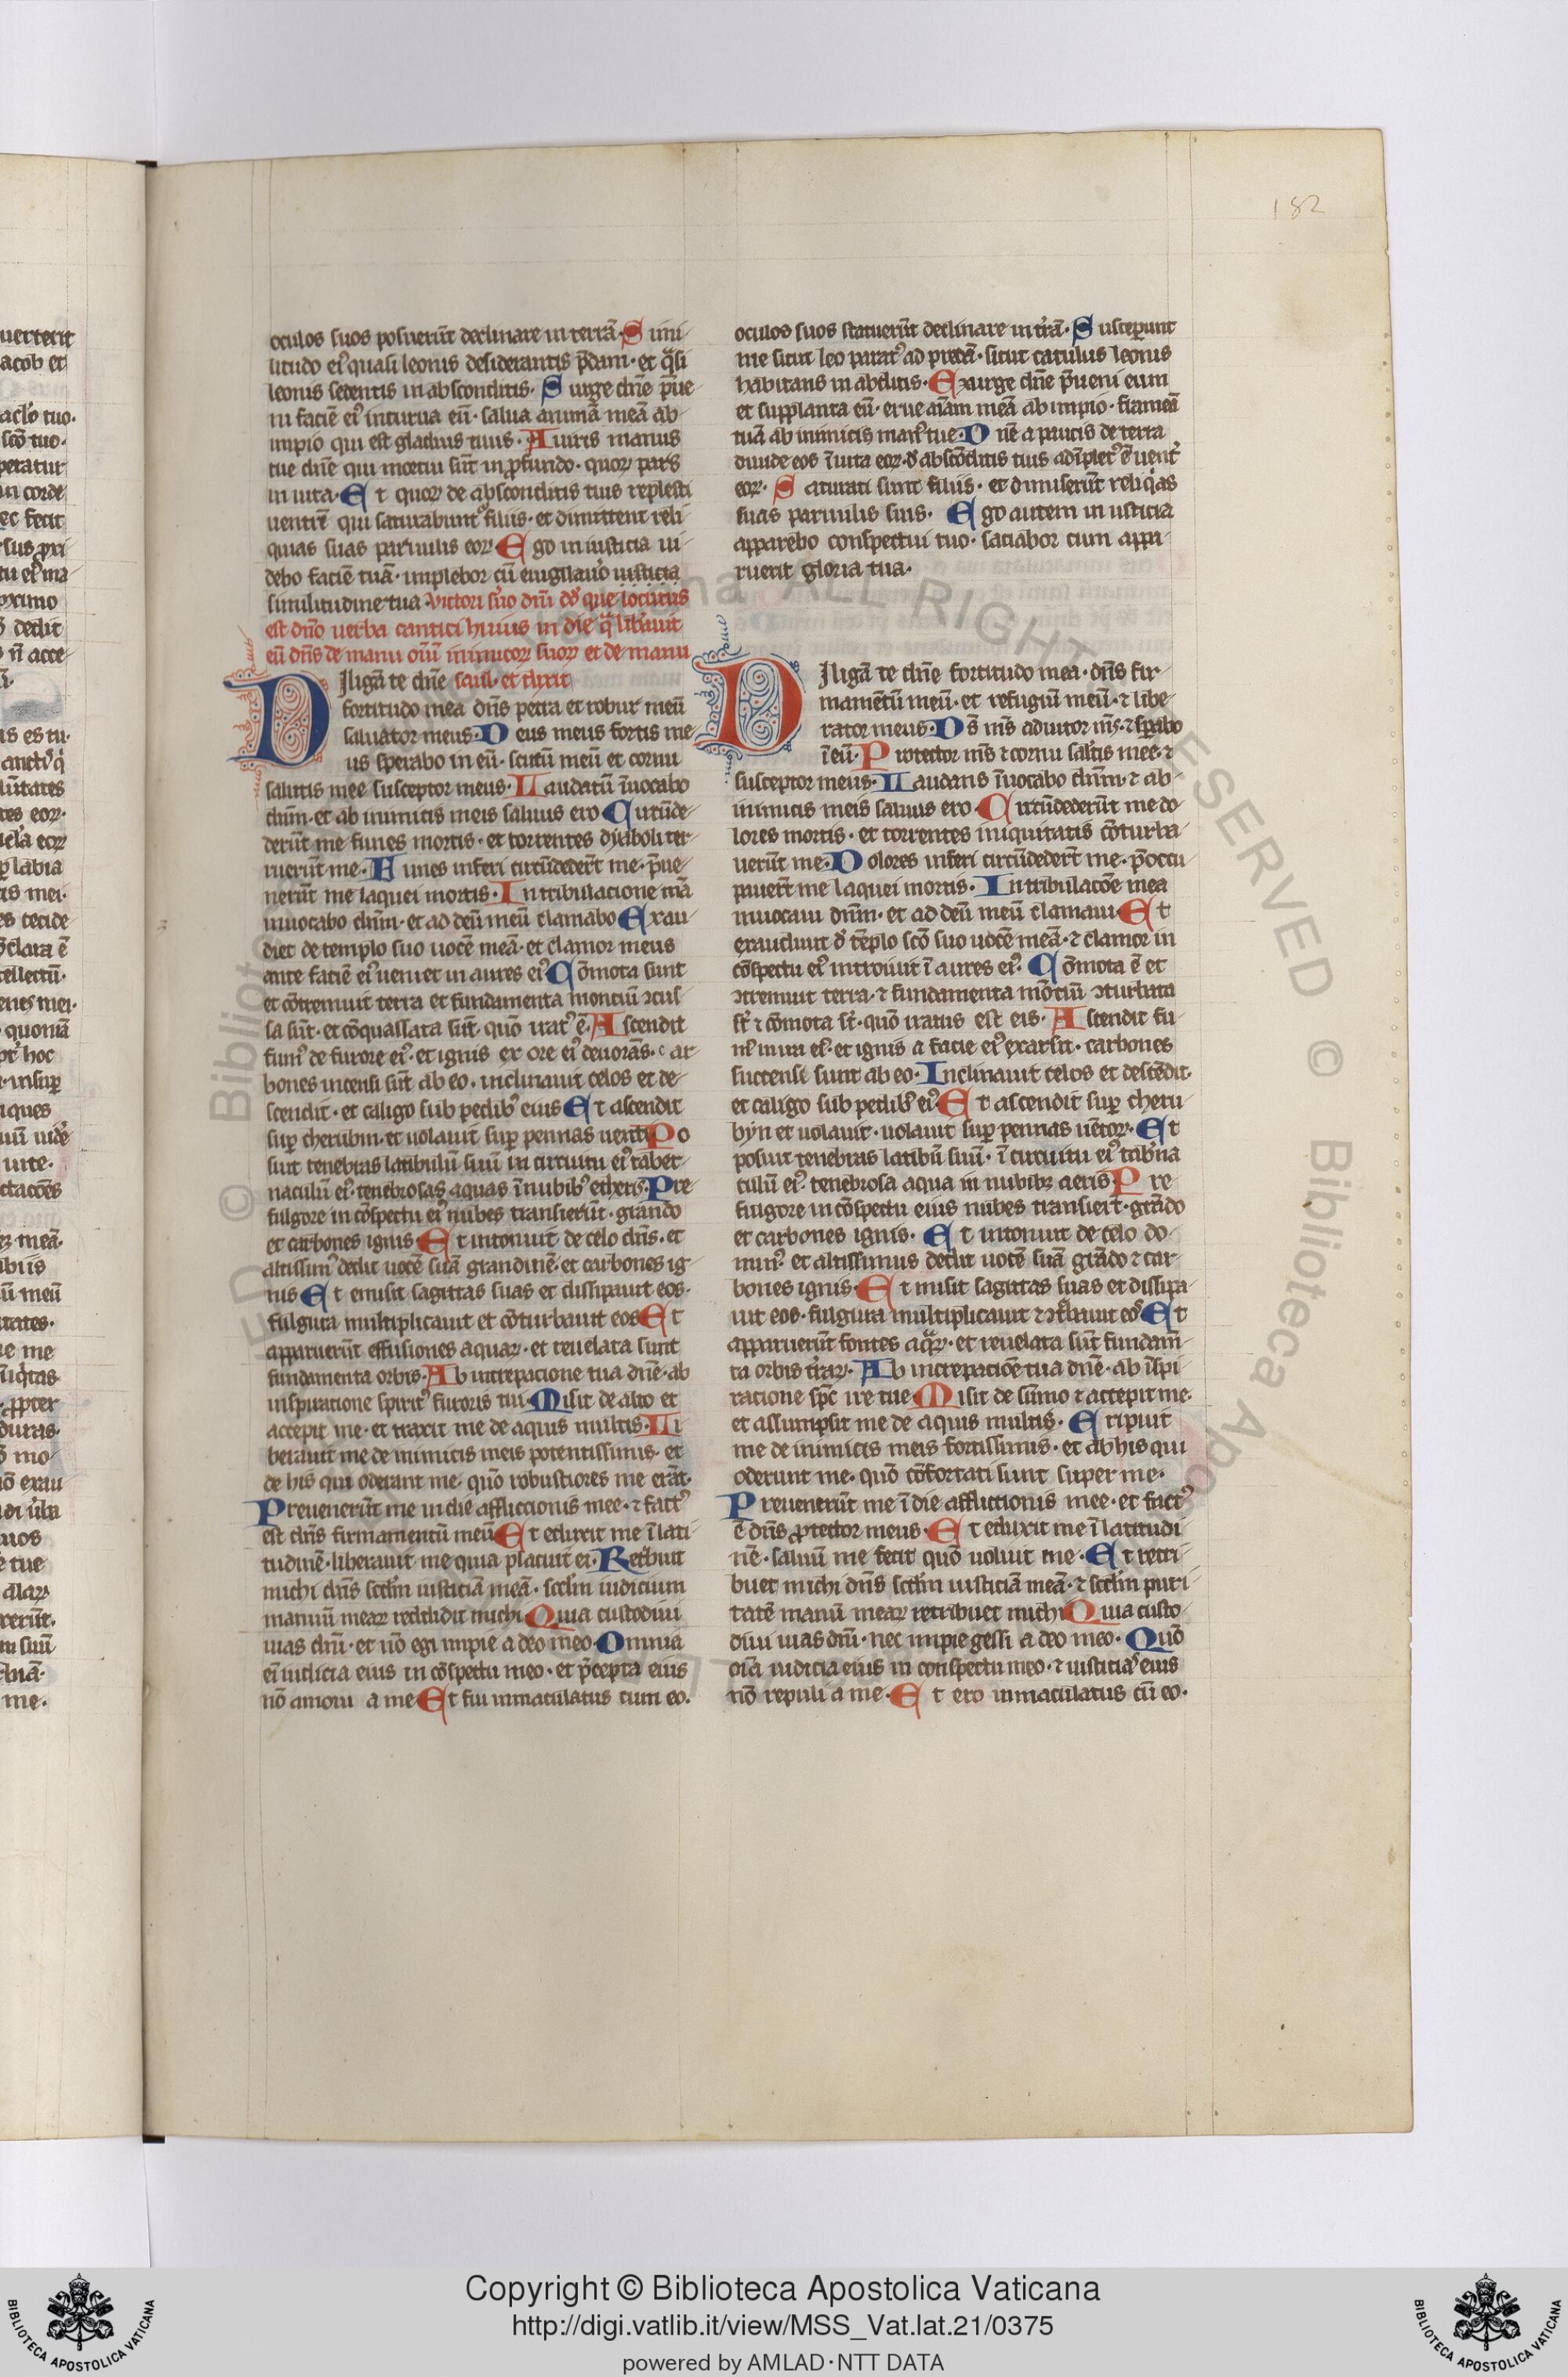 182
oculos suos posuerūt declinare in terrā· Simi-
litudo eiꝰ quasi leonis desiderantis p̄dam· et q̄si
leonis sedentis in absconditis· Surge dn̄e p̄ue-
ni faciē eiꝰ incurua eū· salua animā meā ab
impio qui est gladius tuus· A uiris manus
tue dn̄e qui mortui sūt in ꝓfundo· quoꝝ pars
in uita· Et quoꝝ de absconditis tuis replesti
uentrē qui saturabunt᷑ filiis· et dimittent reli-
quias suas paruulis eoꝝ· Ego in iusticia ui-
debo faciē tuā· implebor cū euigilauo iusticia
similitudine tua· Victori suo dn̄i dd que locutus
est dn̄o uerba cantici huius in die q̄ libauit
eū dn̄s de manu oīū inimicoꝝ suoꝝ et de manu
Diligā te dn̄e saul· et dixit
fortitudo mea dn̄s petra et robur meū
saluator meus· Deus meus fortis me-
us sperabo in eū· scutū meū et cornu
salutis mee susceptor meus· Laudatū īuocabo
dn̄m· et ab inimicis meis saluus ero Circūde-
derūt me funes mortis· et torrentes dyaboli ter-
ruerūt me· Funes inferi circūdedert̄ me· p̄ue-
nerūt me laquei mortis· In tribulacione mā
inuocabo dn̄m· et ad deū meū clamabo Exau-
diet de templo suo uocē meā· et clamor meus
ante faciē eiꝰ ueniet in aures eiꝰ Cōmota sunt
et cōtremuit terra et fundamenta montiū ꝯcus-
sa sūt· et cōquassata sūt· quō iratꝰ ē· Ascendit
fumꝰ de furore eiꝰ· et ignis ex ore eiꝰ deuorās· car-
bones incensi sūt ab eo· inclinauit celos et de-
scendit· et caligo sub pedibꝰ eius Et ascendit
suꝑ cherubin· et uolauit suꝑ pennas uenti Po
suit tenebras latibulū suū in circuitu eiꝰ taber-
naculū eiꝰ· tenebrosas aquas ī nubibꝰ etheris· Pre
fulgore in cōspectu eiꝰ nubes transierūt· grando
et carbones ignis Et intonuit de celo dn̄s· et
altissimꝰ dedit uocē suā grandinē· et carbones ig-
nis Et emisit sagittas suas et dissipauit eos·
fulgura multiplicauit et cōturbauit eos Et
apparuerūt effusiones aquaꝝ· et reuelata sunt
fundamenta orbis· Ab increpacione tua dn̄e· ab
inspiratione spiritꝰ furoris tui· Misit de alto et
accepit me· et traxit me de aquis multis· Li
berauit me de inimicis meis potentissimis· et
de his qui oderant me· quō robustiores me erāt·
Preuenerūt me in die affliccionis mee· ⁊ factꝰ
est dn̄s firmamentū meū Et eduxit me ī lati-
tudinē· liberauit me quia placuit ei· Retbuit
michi dn̄s scdm̄ iusticiā meā· scdm̄ iudicium
manuū meaꝝ reddidit michi Quia custodiui
uias dn̄i· et nō egi impie a deo meo· Omnia
eī iudicia eius in cōspectu meo· et p̄cepta eius
nō amoui a me Et fui inmaculatus cum eo.
oculos suos statuerūt declinare in tr̄ā· Susceperunt
me sicut leo paratꝰ ad predā· sicut catulus leonis
habitans in abditis· Exurge dn̄e p̄ueni eum
et supplanta eū· erue aīam meā ab impio· frameā
tuā ab inimicis manꝰ tue· Dn̄e a paucis de terra
diuide eos ī uita eoꝝ· d̄ abscōditis tuis adīpletꝰ ē uent᷑
eoꝝ· Saturati sunt filiis· et dimiserūt reliqas
suas paruulis suis· Ego autem in iusticia
apparebo conspectui tuo· saciabor cum appa-
ruerit gloria tua·
Diligā te dn̄e fortitudo mea· dn̄s fir-
mamētū meū· et refugiū meū· ⁊ libe-
rator meus· Ds̄ ms̄ adiutor ms̄· ⁊ sꝑabo
ī eū· Protector ms̄ ⁊ cornu saltis mee· ⁊
susceptor meus· Laudans īuocabo dn̄m· ⁊ ab-
inimicis meis saluus ero· Circūdederūt me do-
lores mortis· et torrentes iniquitatis cōturba-
uerūt me· Dolores inferi circūdedert̄ me· p̄occu-
pauert̄ me laquei mortis· In tribulacōe mea
inuocaui dn̄m· et ad deū meū clamaui· Et
exaudiuit d̄ tēplo scō suo uocē meā· ⁊ clamor in
cōspectu eiꝰ introiuit ī aures eiꝰ· Cōmota ē et
ꝯtremuit terra· ⁊ fundamenta mōtiū ꝯturbata
st̄ ⁊ cōmota st̄· quō iratus est eis· Ascendit fu-
mꝰ in ira eiꝰ· et ignis a facie eiꝰ exarsit· carbones
succensi sunt ab eo· Inclinauit celos et descēdit·
et caligo sub pedibꝰ eiꝰ Et ascendit suꝑ cheru-
byn et uolauit· uolauit suꝑ pennas uētoꝝ· Et
posuit tenebras latibū suū· ī circuitu eiꝰ tabna
culū eiꝰ· tenebrosa aqua in nubibꝫ aeris Pre
fulgore in cōspectu eius nubes transiert̄· grādo
et carbones ignis· Et intonuit de celo do-
minꝰ· et altissimus dedit uocē suā grādo ⁊ car-
bones ignis· Et misit sagittas suas et dissipa-
uit eos· fulgura multiplicauit ⁊ ꝯtbauit eos Et
apparuerūt fontes aqꝝ· et reuelata sūt fundam̄-
ta orbis tr̄aꝝ· Ab increpaciōe tua dn̄e· ab īspi-
ratione spc̄ ire tue Misit de sūmo ⁊ accepit me·
et assumpsit me de aquis multis· Eripuit
me de inimicis meis fortissimis· et ab his qui
oderunt me· quō cōfortati sunt super me·
Preuenerūt me ī die afflictionis mee· et factꝰ
ē dn̄s ꝓtector meus· Et eduxit me ī latitudi-
nē· saluū me fecit quō uoluit me· Et retri-
buet michi dn̄s scdm̄ iusticiā meā· ⁊ scdm̄ puri-
tatē manuū meaꝝ retribuet michi Quia custo-
diui uias dn̄i· nec impie gessi a deo meo· Quō
oīa iudicia eius in conspectu meo· ⁊ iusticias eius
nō repuli a me· Et ero inmaculatus cū eo·
Copyright © Biblioteca Apostolica Vaticana
http://digi.vatlib.it/view/MSS_Vat.lat.21/0375
powered by AMLAD·NTT DATA
BIBLIOTECA APOSTOLICA VATICANA
BIBLIOTECA APOSTOLICA VATICANA